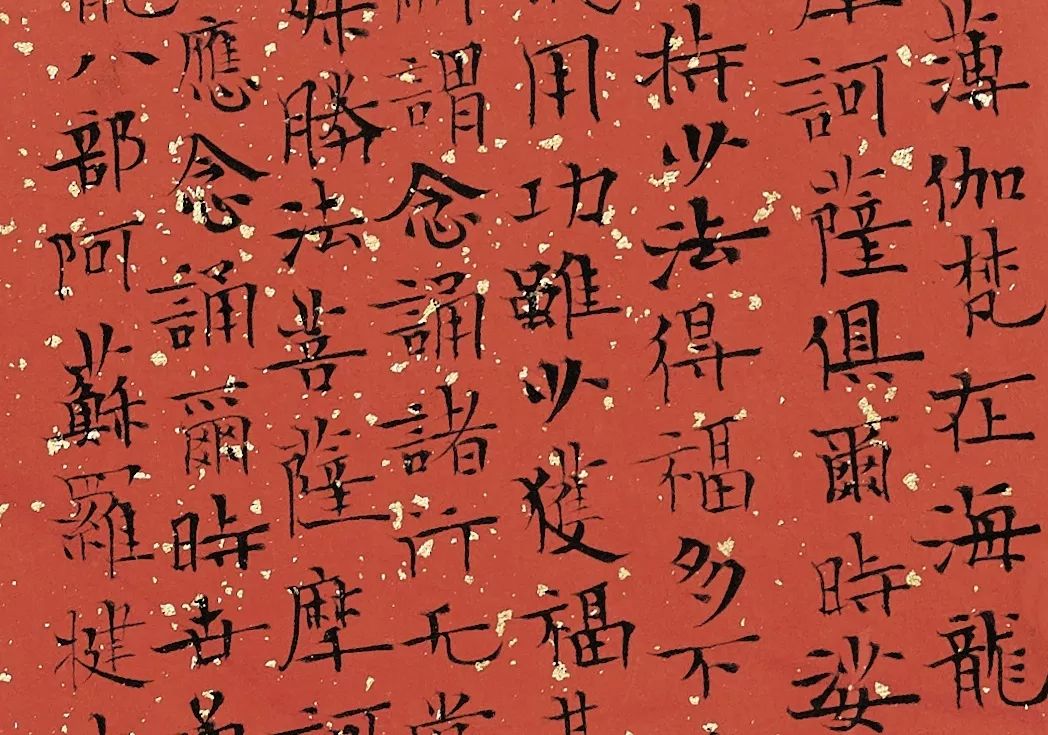 薄伽梵在海龍
摩訶薩俱爾時娑
持少法得福多不
用功雖少獲福甚
謂念誦諸行无常
殊勝法菩薩摩訶
應念誦爾時世尊
龍八部阿蘇羅揵